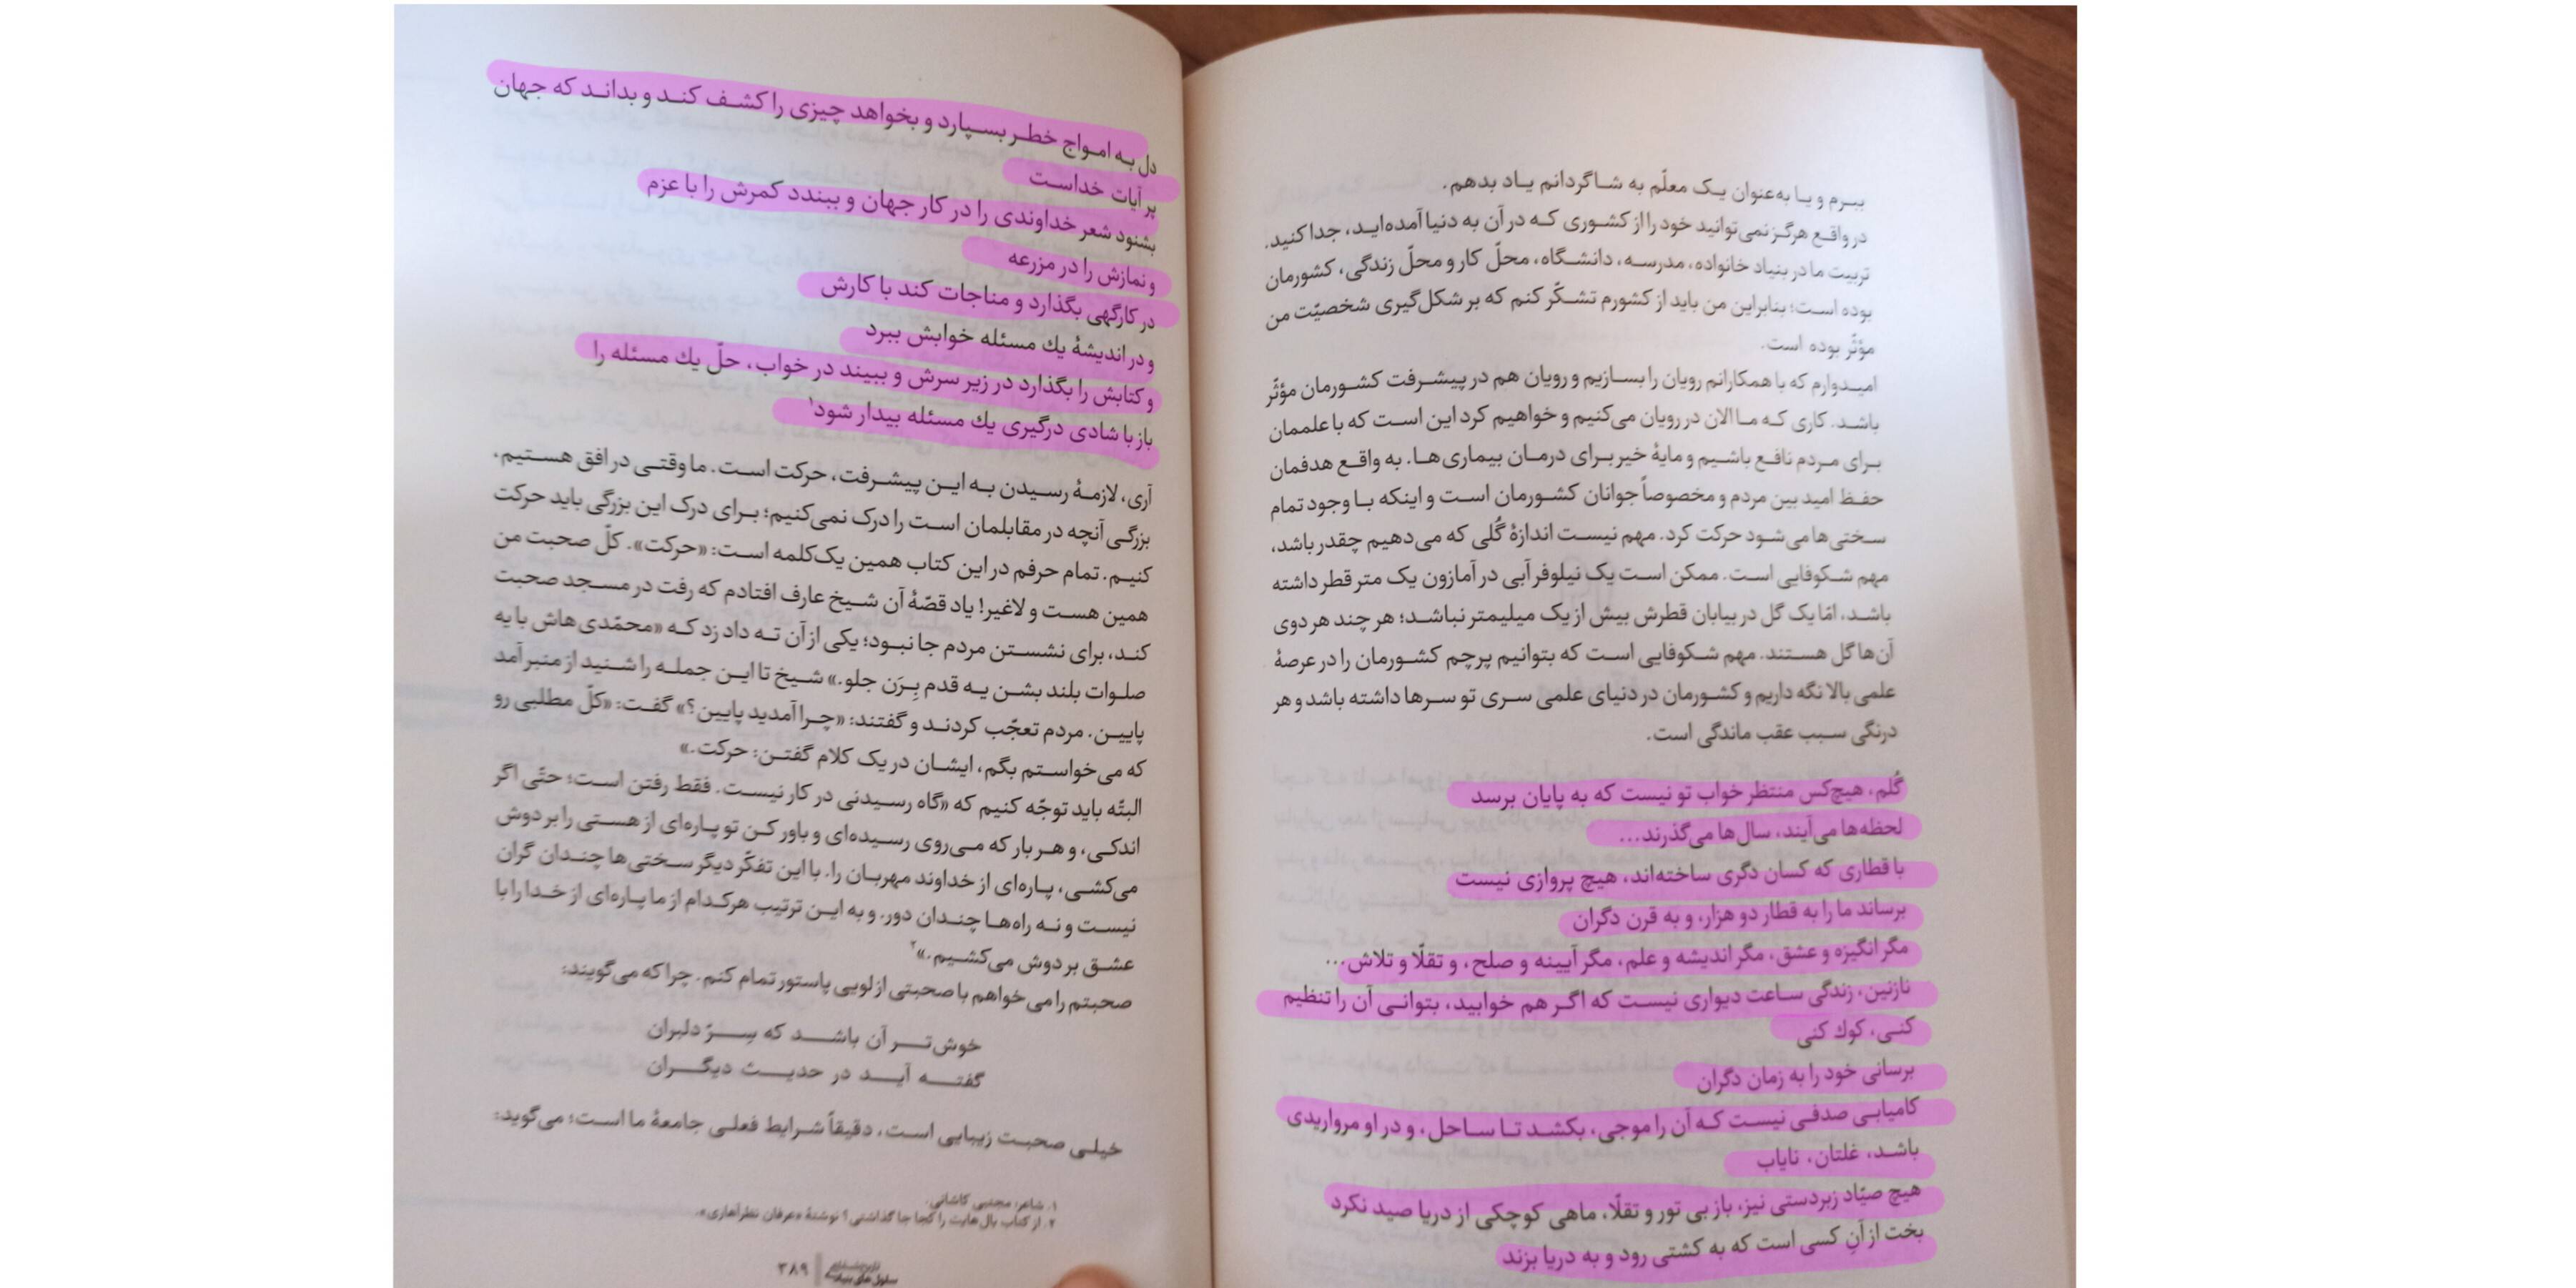 ببرم و یا به‌عنوان یک معلّم به شاگردانم یاد بدهم.
در واقع هرگز نمی‌توانید خود را از کشوری که در آن به دنیا آمده‌اید، جدا کنید.
تربیت ما در بنیاد خانواده، مدرسه، دانشگاه، محلّ کار و محلّ زندگی، کشورمان
بوده است؛ بنابراین من باید از کشورم تشکّر کنم که بر شکل‌گیری شخصیّت من
مؤثّر بوده است.
امیدوارم که با همکارانم رویان را بسازیم و رویان هم در پیشرفت کشورمان مؤثّر
باشد. کاری که ما الان در رویان می‌کنیم و خواهیم کرد این است که با علممان
برای مردم نافع باشیم و مایهٔ خیر برای درمان بیماری‌ها. به واقع هدفمان
حفظ امید بین مردم و مخصوصاً جوانان کشورمان است و اینکه با وجود تمام
سختی‌ها می‌شود حرکت کرد. مهم نیست اندازهٔ گُلی که می‌دهیم چقدر باشد،
مهم شکوفایی است. ممکن است یک نیلوفر آبی در آمازون یک متر قطر داشته
باشد، امّا یک گل در بیابان قطرش بیش از یک میلیمتر نباشد؛ هر چند هر دوی
آن‌ها گل هستند. مهم شکوفایی است که بتوانیم پرچم کشورمان را در عرصهٔ
علمی بالا نگه داریم و کشورمان در دنیای علمی سری تو سرها داشته باشد و هر
درنگی سبب عقب ماندگی است.
گُلم، هیچ‌کس منتظر خواب تو نیست که به پایان برسد
لحظه‌ها می‌آیند، سال‌ها می‌گذرند...
با قطاری که کسان دگری ساخته‌اند، هیچ پروازی نیست
برساند ما را به قطار دو هزار، و به قرن دگران
مگر انگیزه و عشق، مگر اندیشه و علم، مگر آیینه و صلح، و تقلّا و تلاش...
نازنین، زندگی ساعت دیواری نیست که اگر هم خوابید، بتوانی آن را تنظیم
کنی، کوك کنی
برسانی خود را به زمان دگران
کامیابی صدفی نیست که آن را موجی، بکشد تا ساحل، و در او مرواریدی
باشد، غلتان، نایاب
هیچ صیّاد زبردستی نیز، باز بی تور و تقلّا، ماهی کوچکی از دریا صید نکرد
بخت از آنِ کسی است که به کشتی رود و به دریا بزند
دل به امواج خطر بسپارد و بخواهد چیزی را کشف کند و بداند که جهان
پر آیات خداست
بشنود شعر خداوندی را در کار جهان و ببندد کمرش را با عزم
و نمازش را در مزرعه
در کارگهی بگذارد و مناجات کند با کارش
و در اندیشهٔ یك مسئله خوابش ببرد
و کتابش را بگذارد در زیر سرش و ببیند در خواب، حلّ یك مسئله را
باز با شادی درگیری یك مسئله بیدار شود۱
آری، لازمهٔ رسیدن به این پیشرفت، حرکت است. ما وقتی در افق هستیم،
بزرگی آنچه در مقابلمان است را درک نمی‌کنیم؛ برای درک این بزرگی باید حرکت
کنیم. تمام حرفم در این کتاب همین یک‌کلمه است: «حرکت». کلّ صحبت من
همین هست و لاغیر! یاد قصّهٔ آن شیخ عارف افتادم که رفت در مسجد صحبت
کند، برای نشستن مردم جا نبود؛ یکی از آن ته داد زد که «محمّدی‌هاش با یه
صلوات بلند بشن یه قدم بِرَن جلو.» شیخ تا این جمله را شنید از منبر آمد
پایین. مردم تعجّب کردند و گفتند: «چرا آمدید پایین؟» گفت: «کلّ مطلبی رو
که می‌خواستم بگم، ایشان در یک کلام گفتن: حرکت.»
البتّه باید توجّه کنیم که «گاه رسیدنی در کار نیست. فقط رفتن است؛ حتّی اگر
اندکی، و هر بار که می‌روی رسیده‌ای و باور کن تو پاره‌ای از هستی را بر دوش
می‌کشی، پاره‌ای از خداوند مهربان را. با این تفکّر دیگر سختی‌ها چندان گران
نیست و نه راه‌ها چندان دور. و به این ترتیب هرکدام از ما پاره‌ای از خدا را با
عشق بر دوش می‌کشیم.»۲
صحبتم را می‌خواهم با صحبتی از لویی پاستور تمام کنم. چرا که می‌گویند:
خوش‌تر آن باشد که سِرّ دلبران
گفته آید در حدیث دیگران
خیلی صحبت زیبایی است، دقیقاً شرایط فعلی جامعهٔ ما است؛ می‌گوید:
۱. شاعر: مجتبی کاشانی.
۲. از کتاب بال‌هایت را کجا جا گذاشتی؟ نوشتهٔ «عرفان نظرآهاری».
سلول‌های بنیادی
۳۸۹